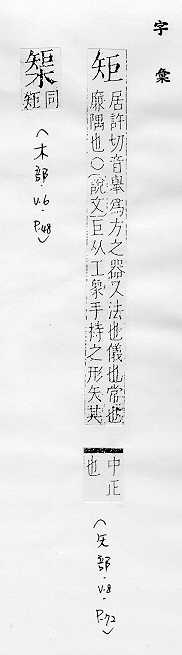 字彙
矩
居許切音舉爲方之器又法也儀也常也
廉隅也〇說文巨从工象手持之形矢其
中正
也
(矢部·V.8·P.72)
榘
同
矩
(木部·V.6·P.48)